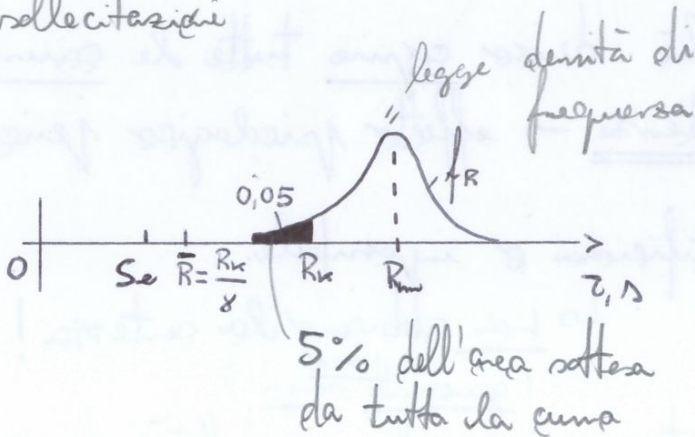 sollecitazione
legge densità di
frequenza
f_R
0,05
0 Se R̄ = R_k/γ R_k R_m r, s
5% dell'area sottesa
da tutta la curva